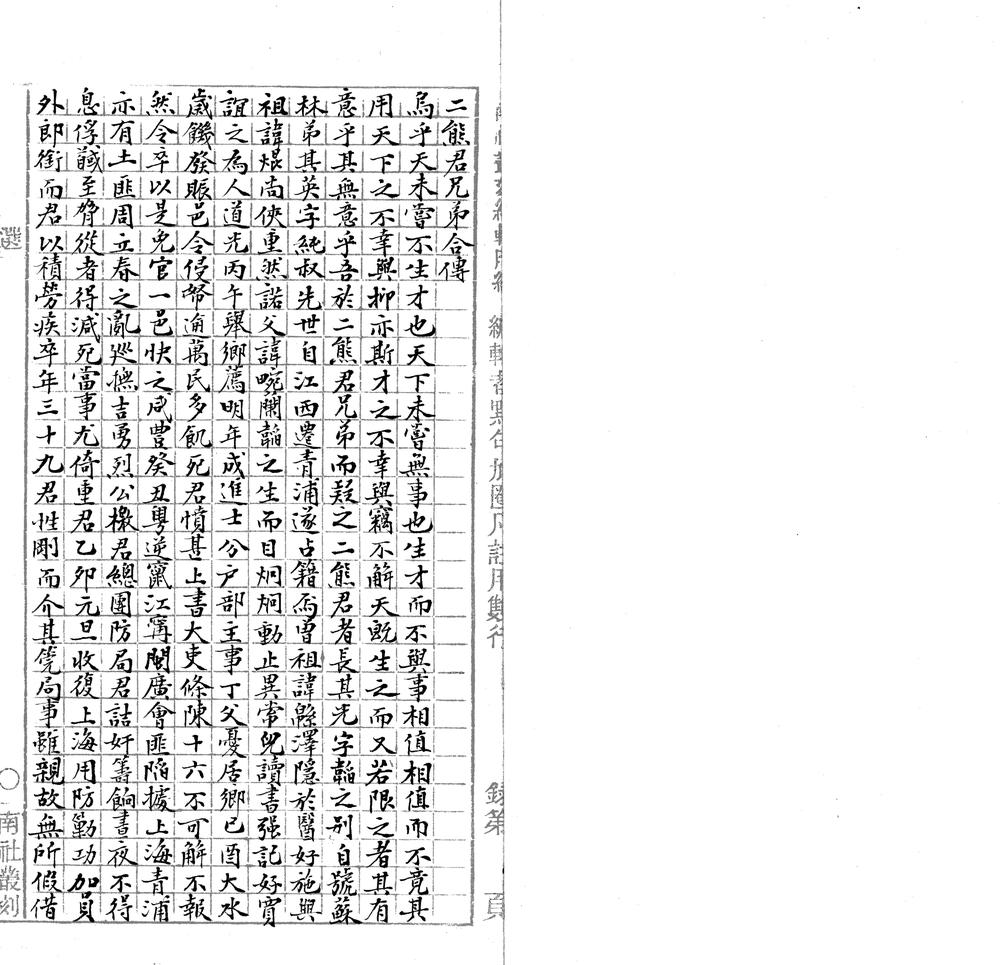 二熊君兄弟合傳
烏乎天未嘗不生才也天下未嘗無事也生才而不與事相值相值而不竟其
用天下之不幸與抑亦斯才之不幸與竊不解天既生之而又若限之者其有
意乎其無意乎吾於二熊君兄弟而疑之二熊君者長其光字韜之别自號蘇
林弟其英字純叔先世自江西遷青浦遂占籍焉曾祖諱緜澤隱於醫好施與
祖諱焜尚俠重然諾父諱畹蘭韜之生而目炯炯動止異常兒讀書强記好賓
誼之為人道光丙午舉鄉薦明年成進士分户部主事丁父憂居鄉已酉大水
歲饑發賬邑令侵帑逾萬民多飢死君憤甚上書大吏條陳十六不可解不報
然令卒以是免官一邑快之咸豐癸丑粵逆竄江寧閩廣會匪陷據上海青浦
亦有土匪周立春之亂巡撫吉勇烈公檄君總團防局君詰奸籌餉晝夜不得
息俘馘至脅從者得減死當事尤倚重君乙卯元旦收復上海用防勦功加員
外郎銜而君以積勞疾卒年三十九君性剛而介其筦局事雖親故無所假借
選 〇 南社叢刻
編輯者點句加圈凡註用雙行 錄第 頁